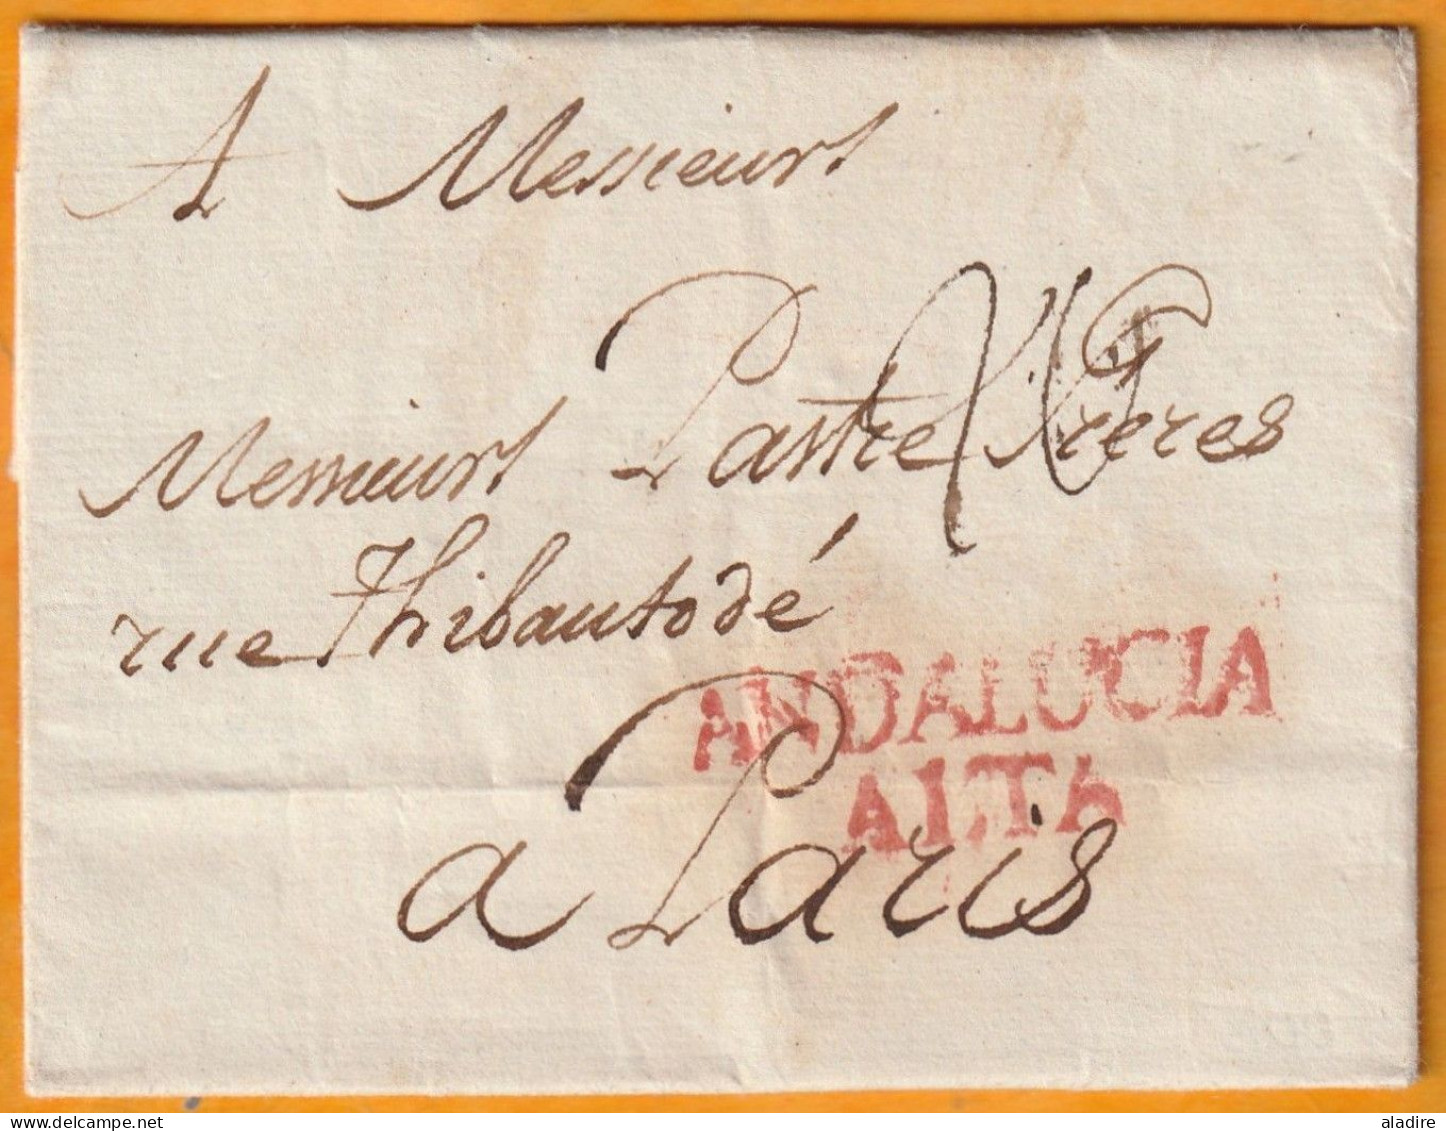 A Messieurs
Messieurs Pastre Freres
rue Thibautodé
ANDALUCIA
ALTA
a Paris
delcampe.net
aladire